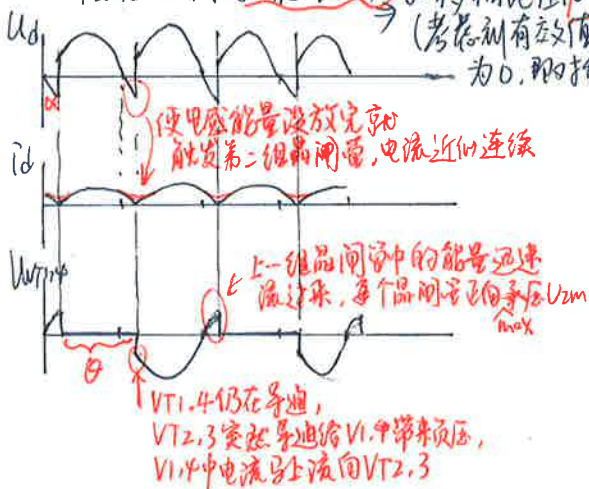 (考虑到有效值
为0,即时
Ud
α
使电感能量没放完就
触发第二组晶闸管,电流近似连续
id
UVT1,4
上一组晶闸管中的能量迅速
流过来,每个晶闸管正向承压U2m
max
θ
VT1.4仍在导通,
VT2.3突然导通给V1.4带来负压,
V1.4中电流马上流向VT2.3